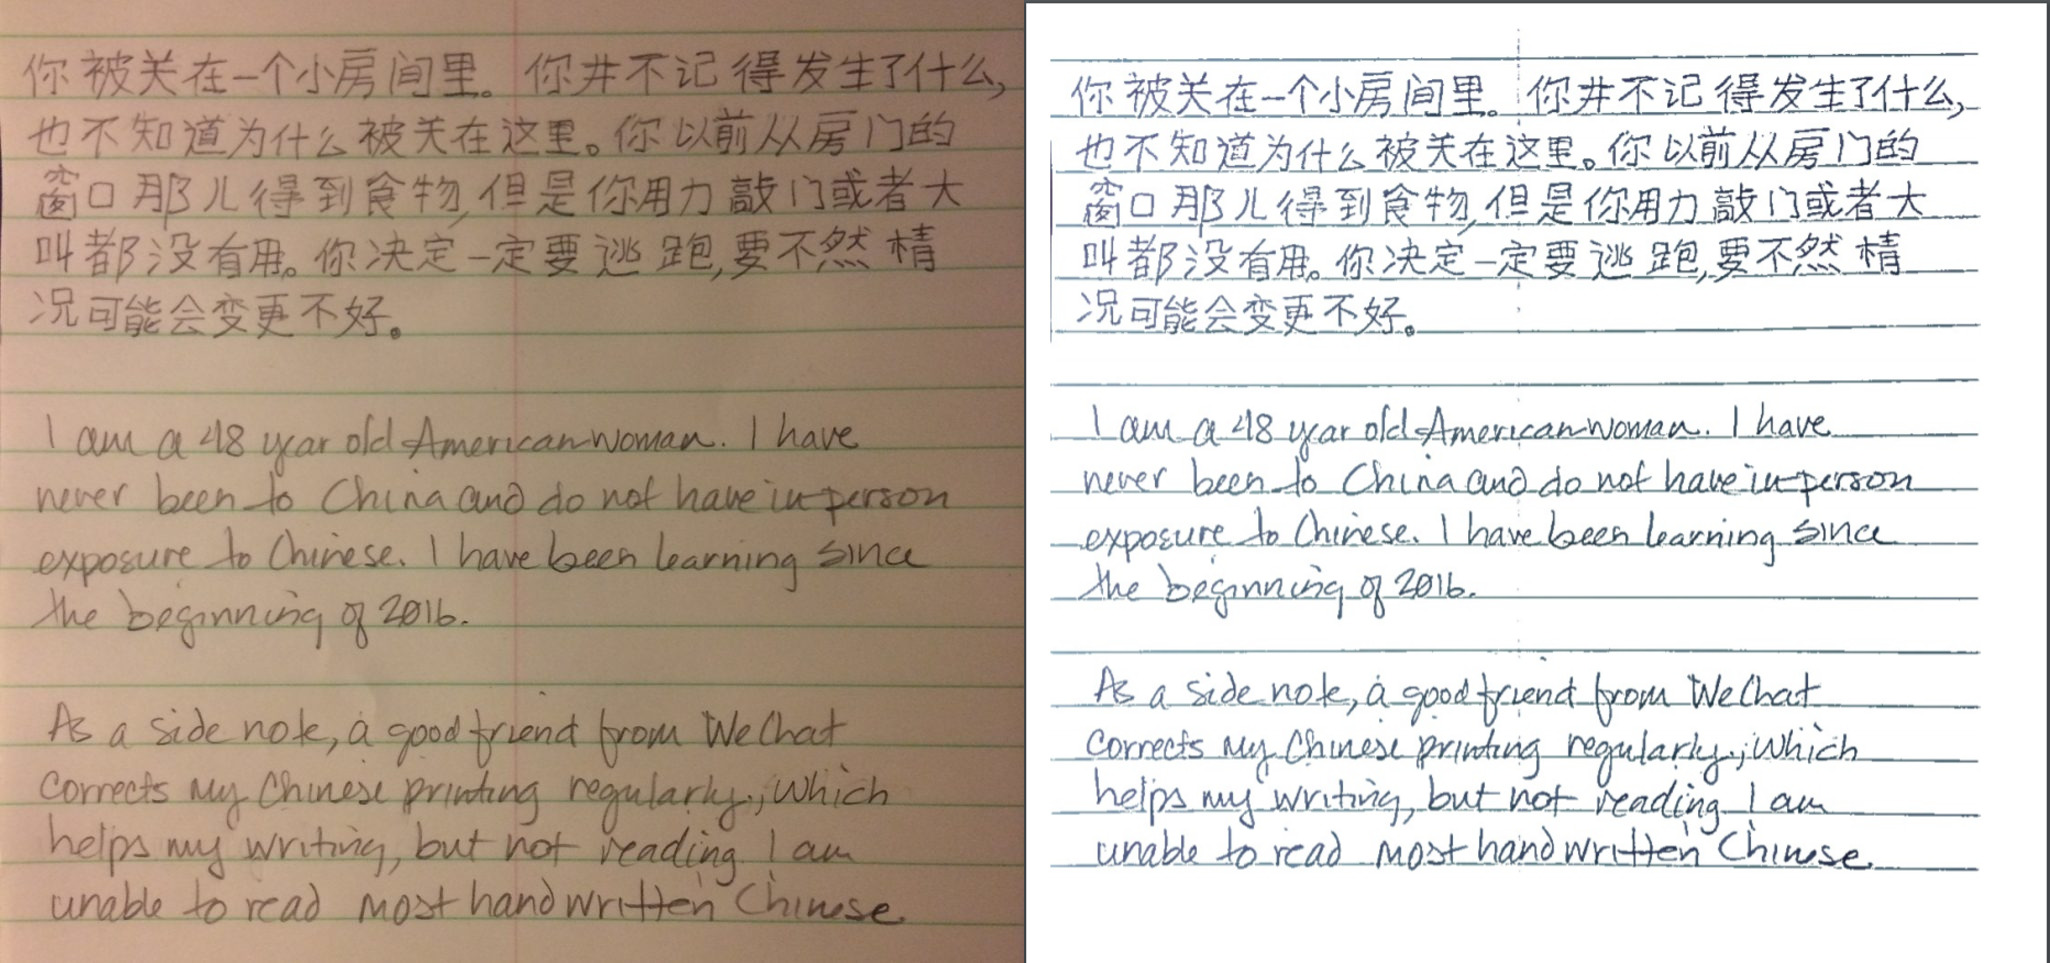 你被关在一个小房间里。你并不记得发生了什么,
也不知道为什么被关在这里。你以前从房门的
窗口那儿得到食物,但是你用力敲门或者大
叫都没有用。你决定一定要逃跑,要不然精
况可能会变更不好。
I am a 48 year old American woman. I have
never been to China and do not have in-person
exposure to Chinese. I have been learning since
the beginning of 2016.
As a side note, a good friend from WeChat
corrects my Chinese printing regularly, which
helps my writing, but not reading. I am
unable to read most handwritten Chinese.
你被关在一个小房间里。你并不记得发生了什么,
也不知道为什么被关在这里。你以前从房门的
窗口那儿得到食物,但是你用力敲门或者大
叫都没有用。你决定一定要逃跑,要不然精
况可能会变更不好。
I am a 48 year old American woman. I have
never been to China and do not have in-person
exposure to Chinese. I have been learning since
the beginning of 2016.
As a side note, a good friend from WeChat
corrects my Chinese printing regularly, which
helps my writing, but not reading. I am
unable to read most handwritten Chinese.